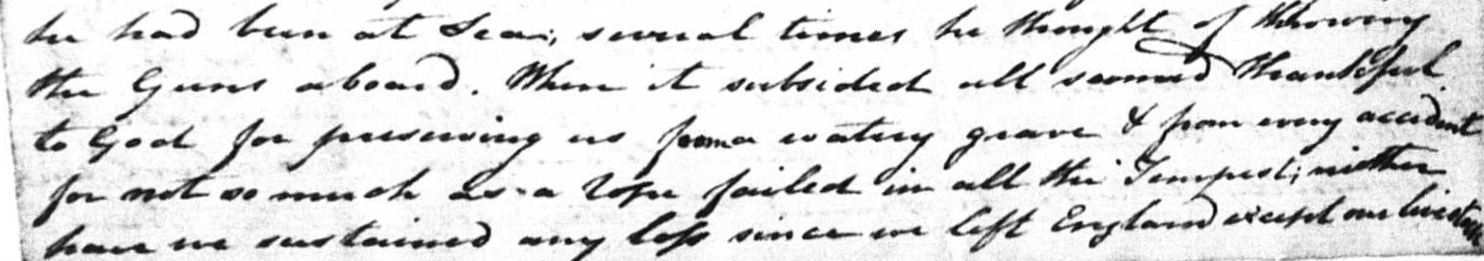 he had been at Sea; several times he thought of throwing
the Guns aboard. When it subsided all seemed thankful
to God for preserving us from a watery grave & from every accident
for not so much as a rope failed in all the Tempest; neither
have we sustained any loss since we left England except our livestock